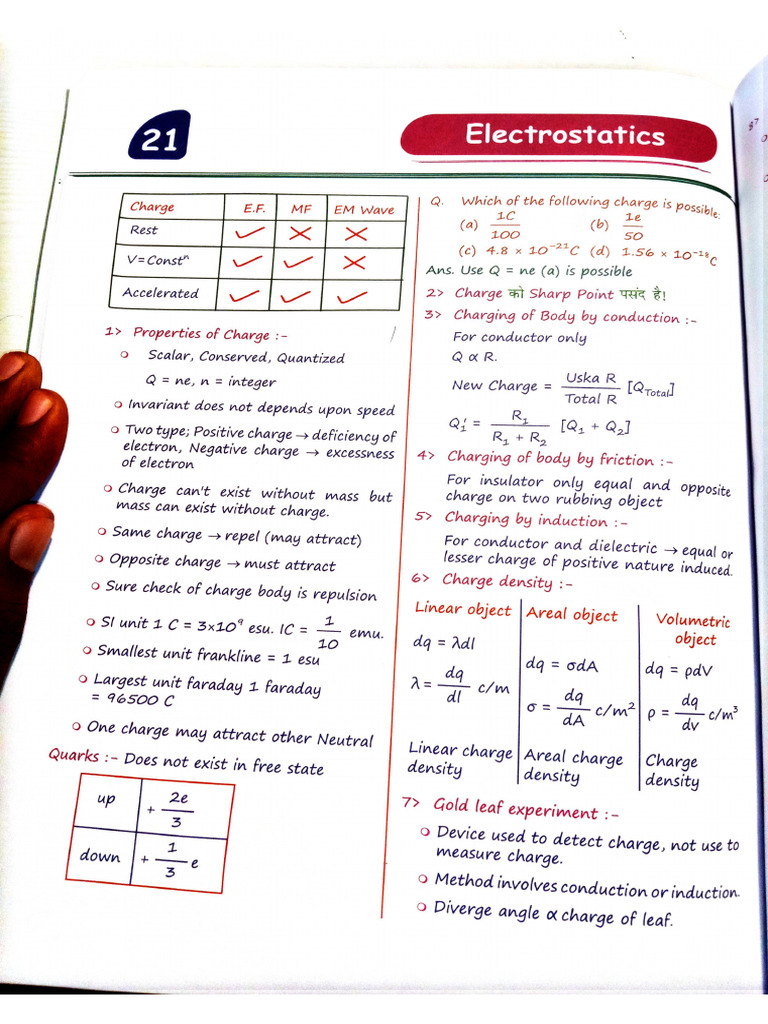 21
Electrostatics
Charge E.F. MF EM Wave
Rest ✓ ✗ ✗
V=Constⁿ ✓ ✓ ✗
Accelerated ✓ ✓ ✓
1> Properties of Charge :-
○ Scalar, Conserved, Quantized
Q = ne, n = integer
○ Invariant does not depends upon speed
○ Two type; Positive charge → deficiency of
electron, Negative charge → excessness
of electron
○ Charge can't exist without mass but
mass can exist without charge.
○ Same charge → repel (may attract)
○ Opposite charge → must attract
○ Sure check of charge body is repulsion
○ SI unit 1 C = 3×10⁹ esu. IC = 1/10 emu.
○ Smallest unit frankline = 1 esu
○ Largest unit faraday 1 faraday
= 96500 C
○ One charge may attract other Neutral
Quarks :- Does not exist in free state
up + 2e/3
down + 1/3 e
Q. Which of the following charge is possible:
(a) 1C/100 (b) 1e/50
(c) 4.8 × 10⁻²¹C (d) 1.56 × 10⁻¹⁸C
Ans. Use Q = ne (a) is possible
2> Charge को Sharp Point पसंद है!
3> Charging of Body by conduction :-
For conductor only
Q α R.
New Charge = Uska R/Total R [Q_Total]
Q₁′ = R₁/(R₁ + R₂) [Q₁ + Q₂]
4> Charging of body by friction :-
For insulator only equal and opposite
charge on two rubbing object
5> Charging by induction :-
For conductor and dielectric → equal or
lesser charge of positive nature induced.
6> Charge density :-
Linear object Areal object Volumetric
object
dq = λdl dq = σdA dq = ρdV
λ = dq/dl c/m σ = dq/dA c/m² ρ = dq/dv c/m³
Linear charge Areal charge Charge
density density density
7> Gold leaf experiment :-
○ Device used to detect charge, not use to
measure charge.
○ Method involves conduction or induction.
○ Diverge angle α charge of leaf.